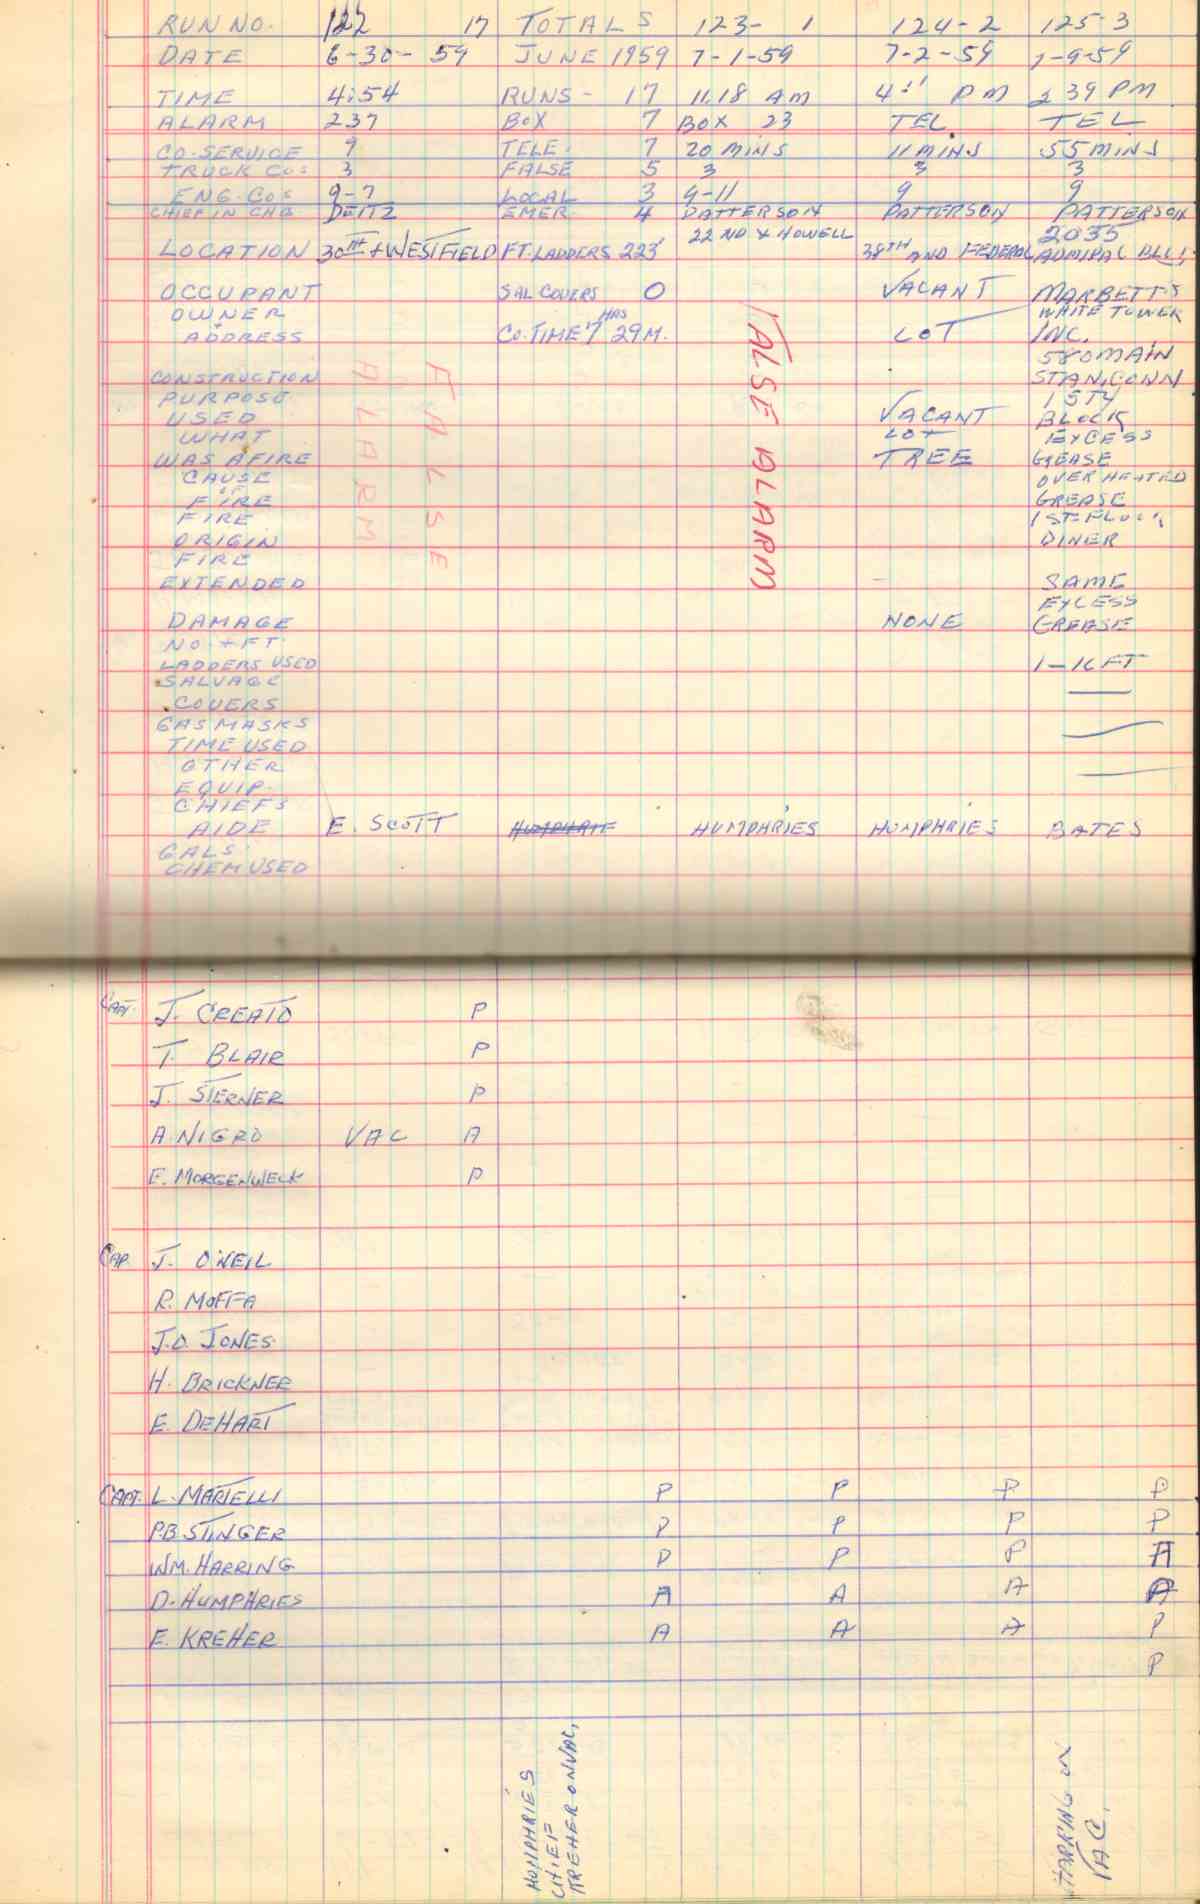 RUN NO. 122 17 TOTALS 123- 1 124-2 125-3
DATE 6-30-59 JUNE 1959 7-1-59 7-2-59 7-9-59
TIME 4:54 RUNS - 17 11.18 AM PM 2 39 PM
ALARM 237 BOX 7 BOX 23 TEL TEL
CO-SERVICE 9 TELE. 7 20 MINS 11 MINS 55 MINS
TRUCK COS 3 FALSE 5 3 3 3
ENG. COS 9-7 LOCAL 3 9-11 9 9
CHIEF IN CHG. DEITZ EMER. 4 PATTERSON PATTERSON PATTERSON
22 ND & HOWELL 2035
LOCATION 30TH + WESTFIELD FT. LADDERS 223' 38TH AND FEDERAL ADMIRAL
OCCUPANT SAL COVERS 0 VACANT MARBETTS
OWNER WHITE TOWER
ADDRESS CO. TIME 7 HRS 29 M. LOT INC.
580 MAIN
CONSTRUCTION STAN, CONN
PURPOSE 1 STY
USED VACANT BLOCK
WHAT LOT EXCESS
WAS AFIRE TREE GREASE
CAUSE OVER HEATED
OF
FIRE GREASE
FIRE 1 ST. FLOOR
ORIGIN DINER
FIRE
EXTENDED - SAME
EXCESS
DAMAGE NONE GREASE
NO. + FT.
LADDERS USED 1-16 FT
SALVAGE
COVERS
GAS MASKS
TIME USED
OTHER
EQUIP.
CHIEFS
AIDE E. SCOTT HUMPHRIE HUMPHRIES HUMPHRIES BATES
GALS.
CHEM USED
FALSE
ALARM
FALSE ALARM
CAPT. J. CREATO P
T. BLAIR P
J. STERNER P
A. NIGRO VAC A
E. MORGENWECK P
CAP. J. O'NEIL
R. MOFFA
J.D. JONES
H. BRICKNER
E. DEHART
CAPT. L. MARTELLI P P P P
P.B. STINGER P P P P
WM. HARRING P P P A
D. HUMPHRIES A A A A
E. KREHER A A A P
P
HUMPHRIES
CHIEF
KREHER ON VAC,
HARRING ON
VAC.